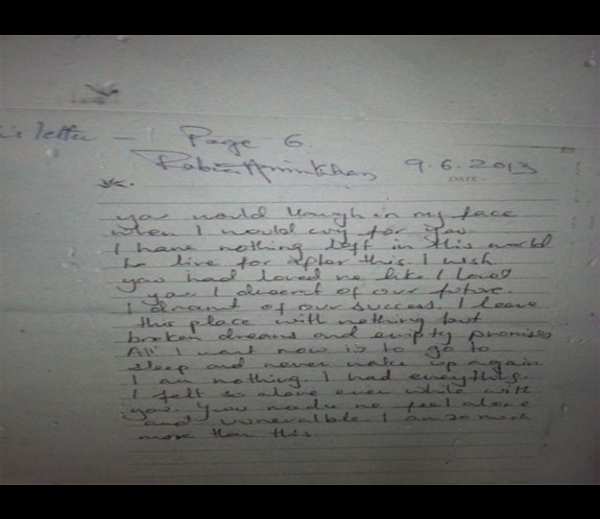 letter - Page - 6.
Rabia Amin Khan 9.6.2013
DATE
you would laugh in my face
when I would cry for you
I have nothing left in this world
to live for after this. I wish
you had loved me like I loved
you. I dreamt of our future.
I dreamt of our success. I leave
this place with nothing but
broken dreams and empty promises
All I want now is to go to
sleep and never wake up again
I am nothing. I had everything.
I felt so alone even while with
you. You made me feel alone
and vunerable. I am so much
more than this.